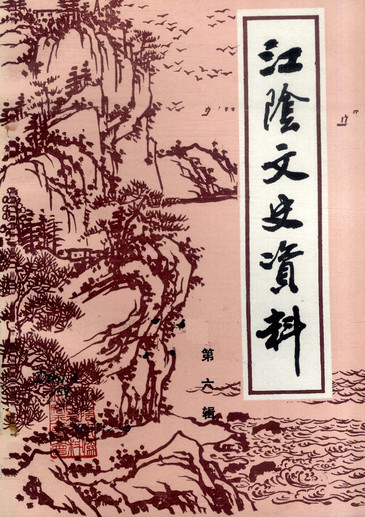 江陰文史資料
第六辑